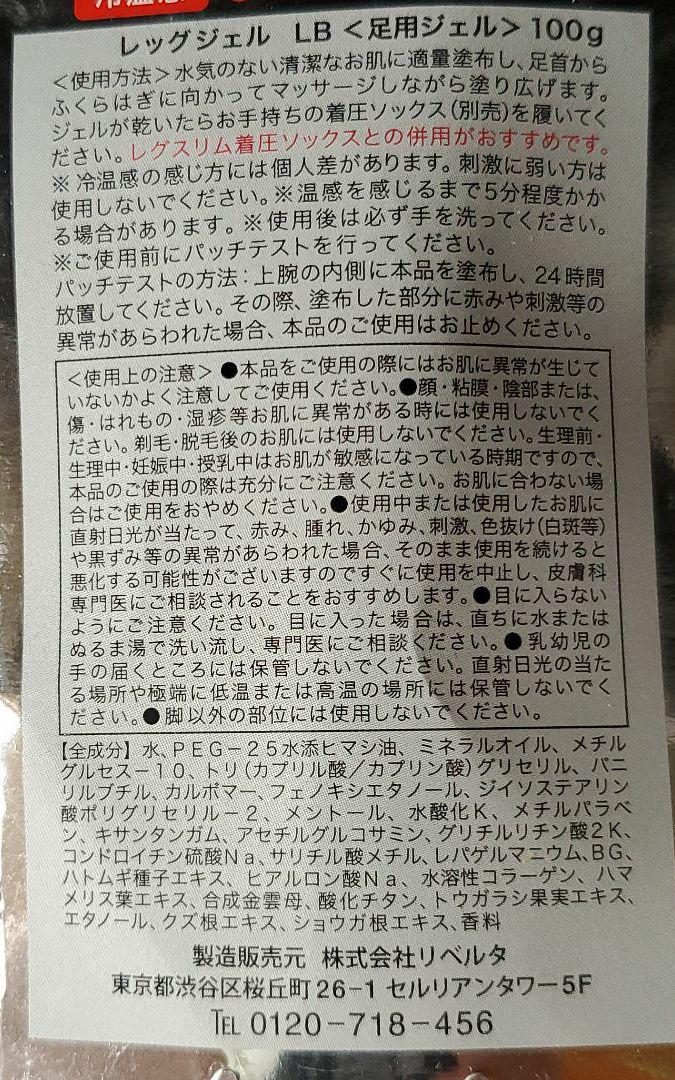 冷温感
レッグジェル　LB＜足用ジェル＞100g
＜使用方法＞水気のない清潔なお肌に適量塗布し、足首から
ふくらはぎに向かってマッサージしながら塗り広げます。
ジェルが乾いたらお手持ちの着圧ソックス(別売)を履いてく
ださい。レグスリム着圧ソックスとの併用がおすすめです。
※冷温感の感じ方には個人差があります。刺激に弱い方は
使用しないでください。※温感を感じるまで5分程度かか
る場合があります。※使用後は必ず手を洗ってください。
※ご使用前にパッチテストを行ってください。
パッチテストの方法：上腕の内側に本品を塗布し、24時間
放置してください。その際、塗布した部分に赤みや刺激等の
異常があらわれた場合、本品のご使用はお止めください。
＜使用上の注意＞●本品をご使用の際にはお肌に異常が生じて
いないかよく注意してご使用ください。●顔・粘膜・陰部または、
傷・はれもの・湿疹等お肌に異常がある時には使用しないでく
ださい。剃毛・脱毛後のお肌には使用しないでください。生理前・
生理中・妊娠中・授乳中はお肌が敏感になっている時期ですので、
本品のご使用の際は充分にご注意ください。お肌に合わない場
合はご使用をおやめください。●使用中または使用したお肌に
直射日光が当たって、赤み、腫れ、かゆみ、刺激、色抜け(白斑等)
や黒ずみ等の異常があらわれた場合、そのまま使用を続けると
悪化する可能性がございますのですぐに使用を中止し、皮膚科
専門医にご相談されることをおすすめします。●目に入らない
ようにご注意ください。目に入った場合は、直ちに水または
ぬるま湯で洗い流し、専門医にご相談ください。●乳幼児の
手の届くところには保管しないでください。直射日光の当た
る場所や極端に低温または高温の場所には保管しないでく
ださい。●脚以外の部位には使用しないでください。
【全成分】水、PEG－25水添ヒマシ油、ミネラルオイル、メチル
グルセス－10、トリ(カプリル酸／カプリン酸)グリセリル、バニ
リルブチル、カルボマー、フェノキシエタノール、ジイソステアリン
酸ポリグリセリル－2、メントール、水酸化K、メチルパラベ
ン、キサンタンガム、アセチルグルコサミン、グリチルリチン酸2K、
コンドロイチン硫酸Na、サリチル酸メチル、レパゲルマニウム、BG、
ハトムギ種子エキス、ヒアルロン酸Na、水溶性コラーゲン、ハマ
メリス葉エキス、合成金雲母、酸化チタン、トウガラシ果実エキス、
エタノール、クズ根エキス、ショウガ根エキス、香料
製造販売元　株式会社リベルタ
東京都渋谷区桜丘町26－1 セルリアンタワー5F
TEL 0120－718－456